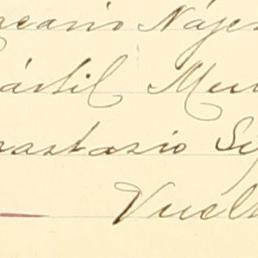 ncario Náje
ártil Mu
nastasio Si
Vuel